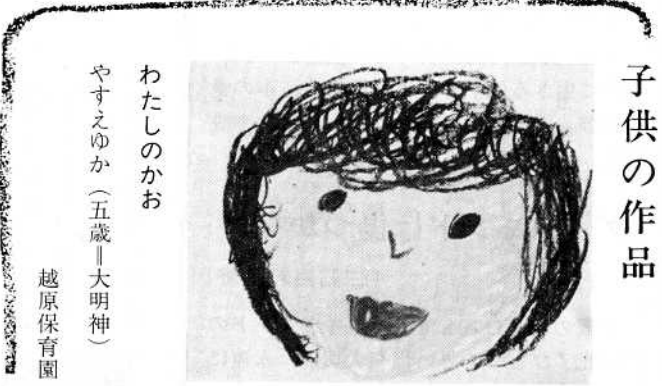 子供の作品
わたしのかお
やすえゆか（五歳＝大明神）
越原保育園